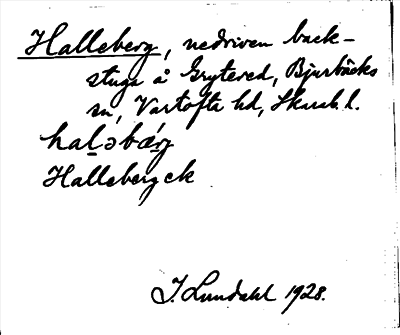 Halleberg, nedriven back-
stuga å Grytered, Bjurbäcks
sn, Vartofta hd, Skarab. l.
halǝbǽrj
Halleberg ck
I. Lundahl 1928.